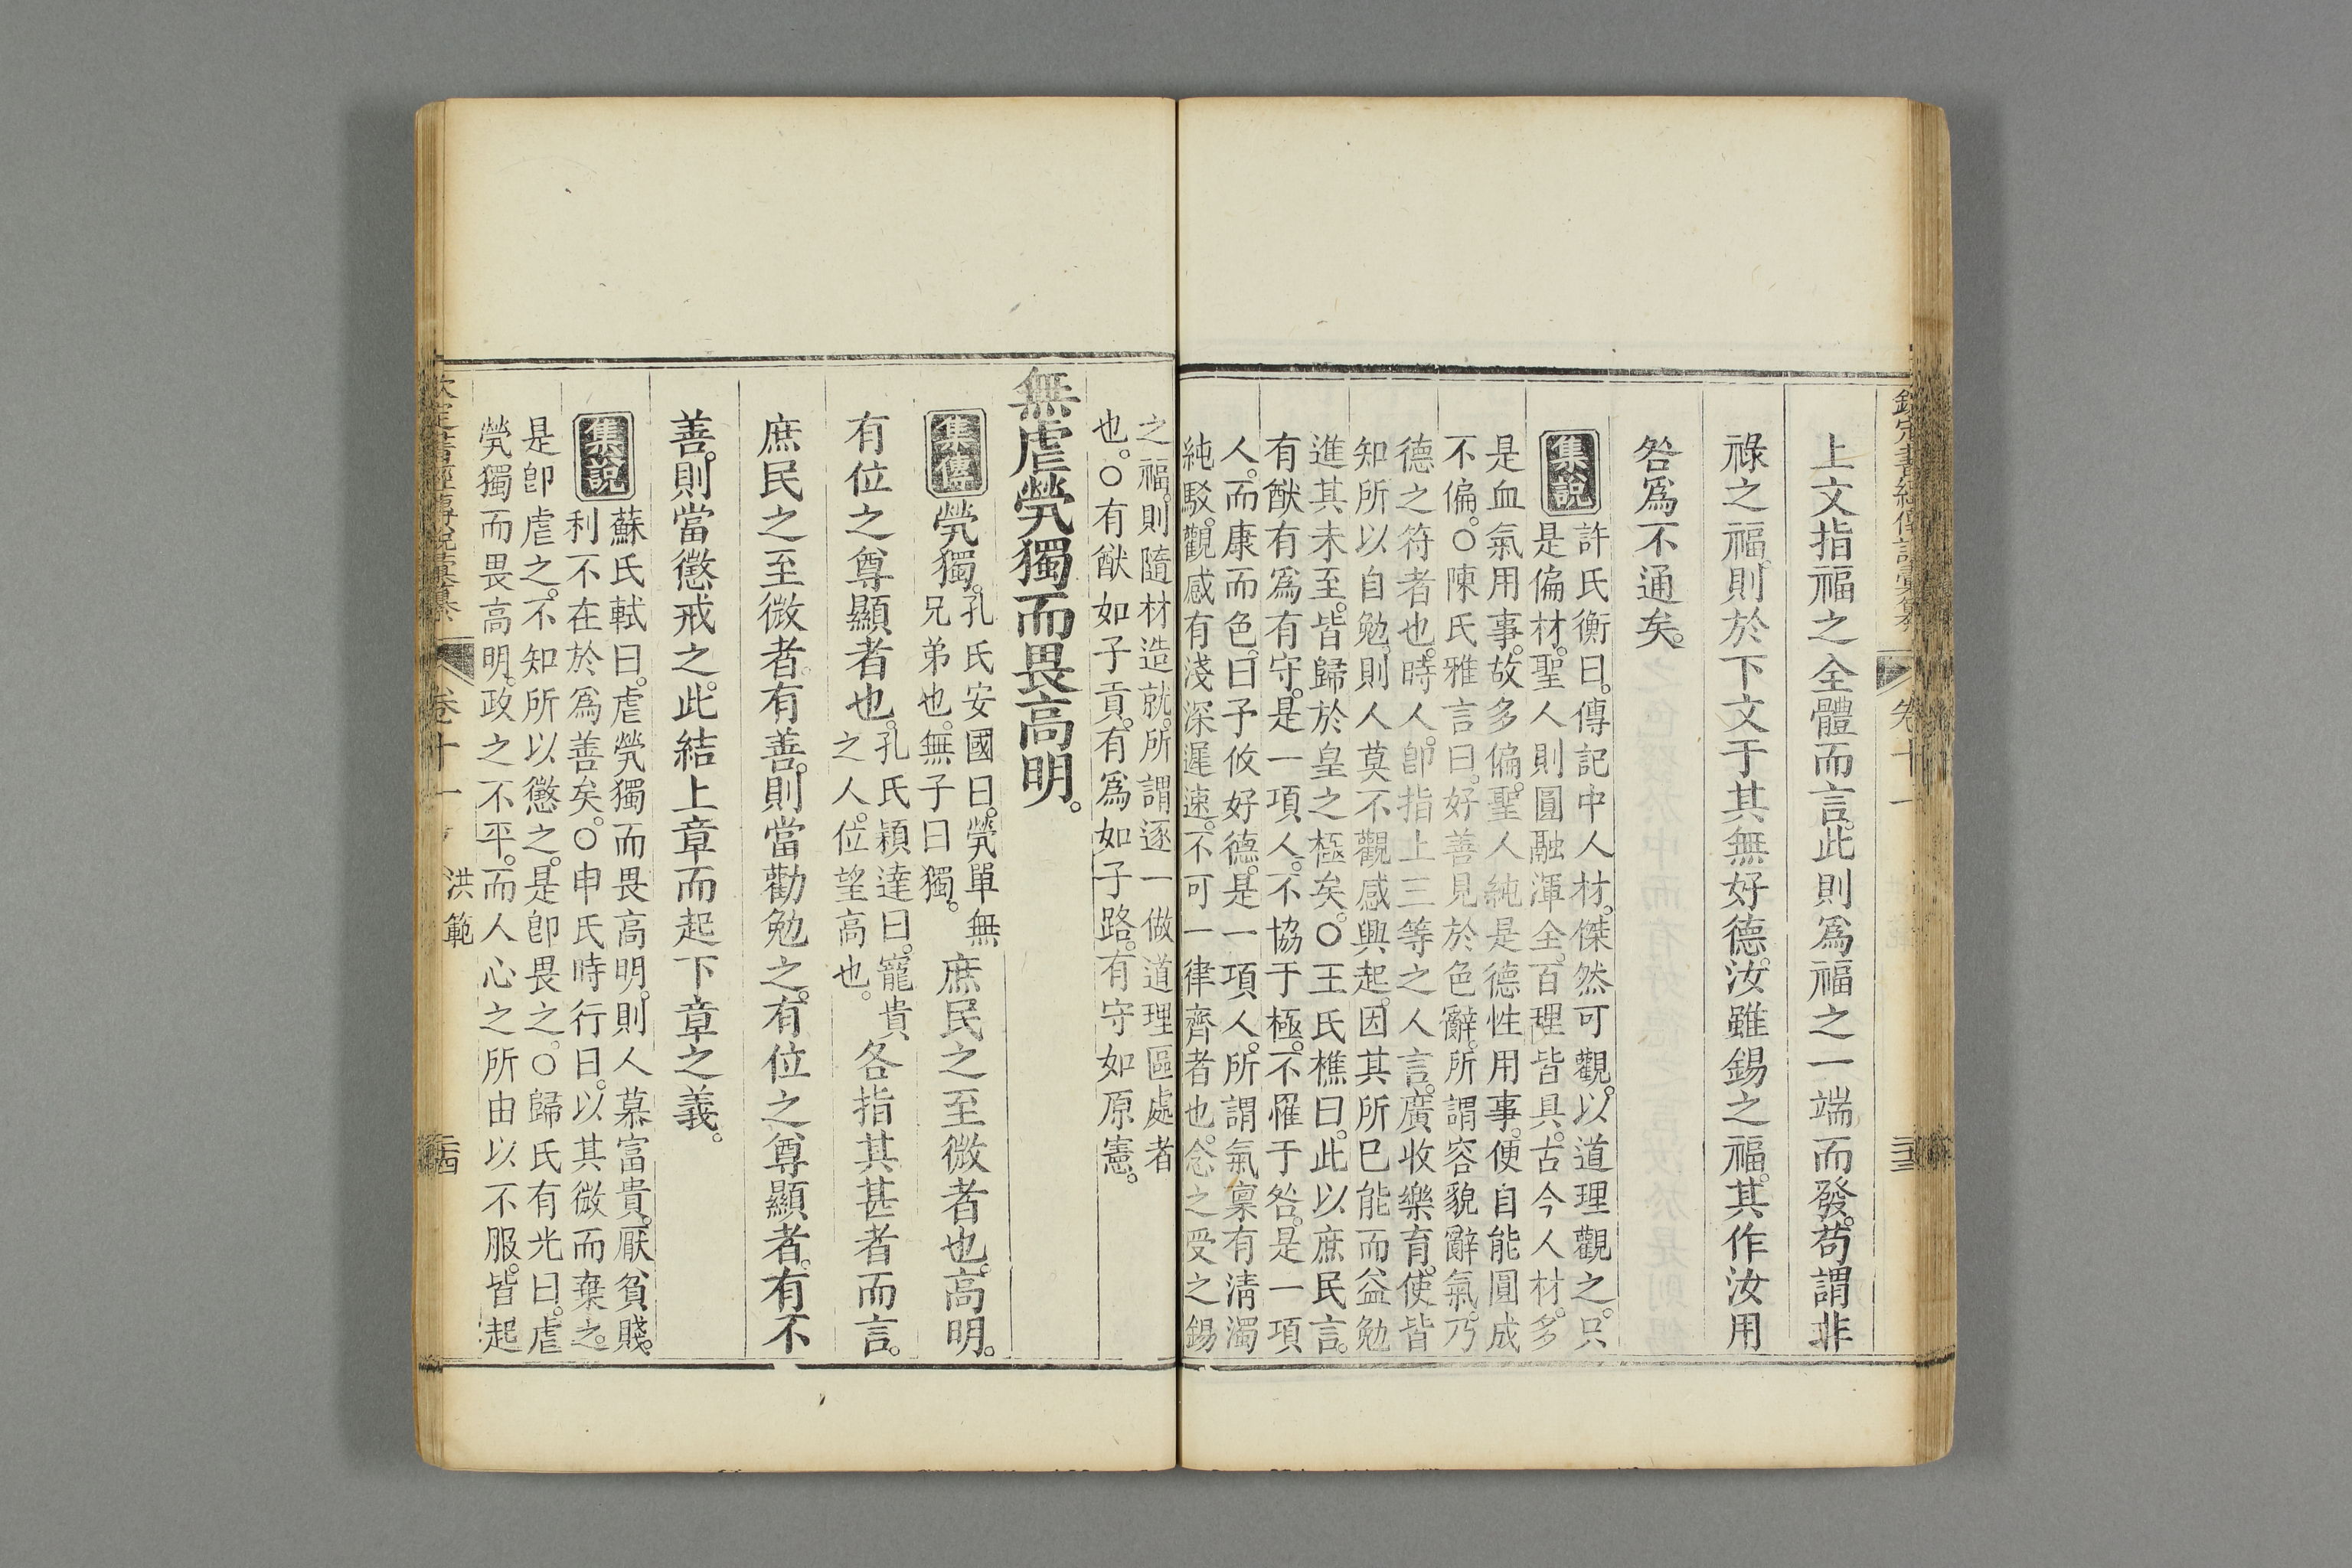 上文指福之全體而言。此則爲福之一端而發。苟謂非
祿之福。則於下文于其無好德。汝雖錫之福。其作汝用
咎爲不通矣。
集說
許氏衡曰。傳記中人材。傑然可觀。以道理觀之。只
是偏材。聖人則圓融渾全。百理皆具。古今人材。多
是血氣用事。故多偏。聖人純是德性用事。便自能圓成
不偏。○陳氏雅言曰。好善見於色辭。所謂容貌辭氣。乃
德之符者也。時人。卽指上三等之人言。廣收樂育。使皆
知所以自勉。則人莫不觀感興起。因其所已能而益勉
進其未至。皆歸於皇之極矣。○王氏樵曰。此以庶民言。
有猷有爲有守。是一項人。不協于極。不罹于咎。是一項
人。而康而色。曰予攸好德。是一項人。所謂氣稟有淸濁
純駁。觀感有淺深遲速。不可一律齊者也。念之受之錫
之福。則隨材造就。所謂逐一做道理區處者
也。○有猷如子貢。有爲如子路。有守如原憲。
無虐煢獨而畏高明。
集傳
煢獨。孔氏安國曰。煢單無
兄弟也。無子曰獨。庶民之至微者也。高明。
有位之尊顯者也。孔氏穎達曰。寵貴
之人。位望高也。各指其甚者而言。
庶民之至微者。有善。則當勸勉之。有位之尊顯者。有不
善。則當懲戒之。此結上章而起下章之義。
集說
蘇氏軾曰。虐煢獨而畏高明。則人慕富貴。厭貧賤。
利不在於爲善矣。○申氏時行曰。以其微而棄之。
是卽虐之。不知所以懲之。是卽畏之。○歸氏有光曰。虐
煢獨而畏高明。政之不平。而人心之所由以不服。皆起
欽定書經傳說彙纂 卷十一 洪範 二十四